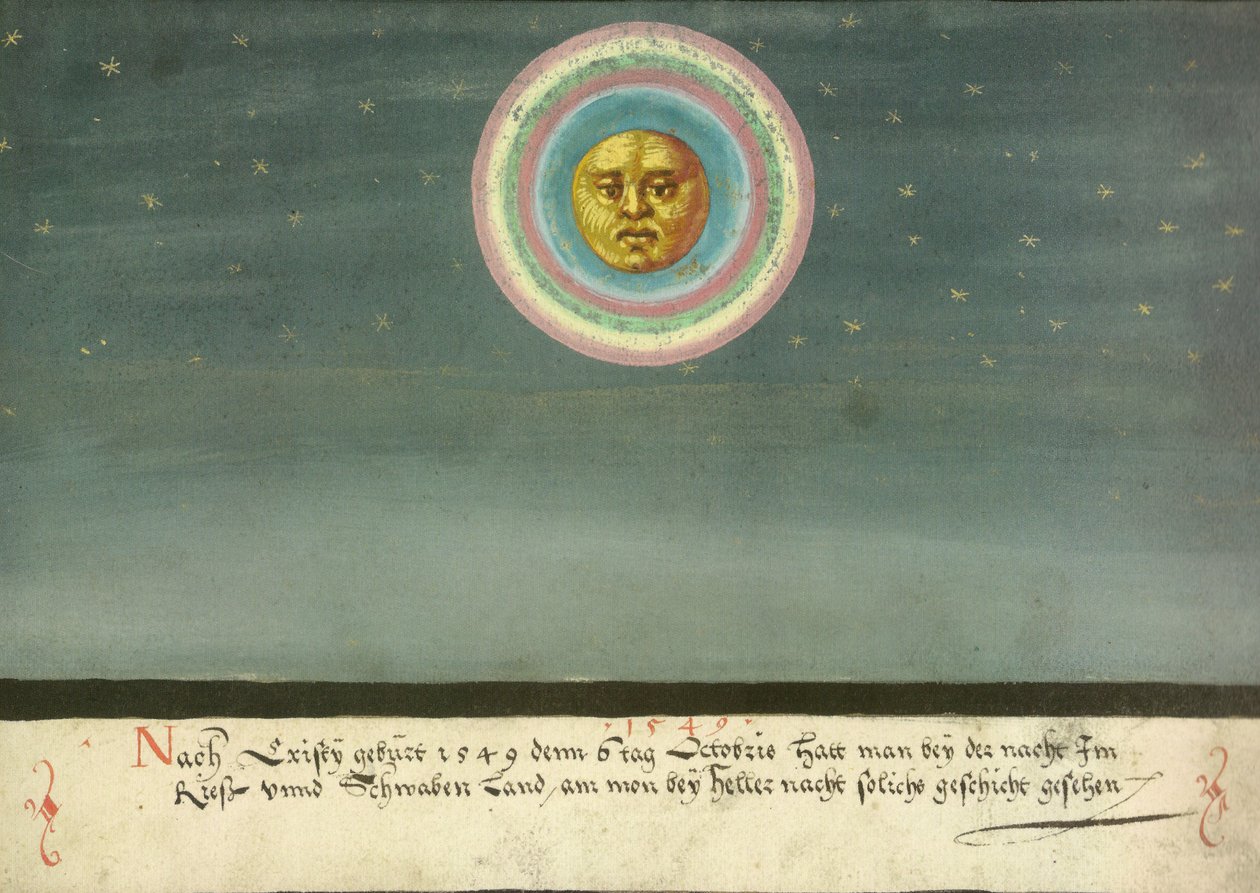 · 1549 ·
Nach Cristÿ gebürt 1549 denn 6 tag Octobris hatt man bey der nacht Im
Rieß vnnd Schwaben Land / am mon bey heller nacht solichs geschicht gesehen